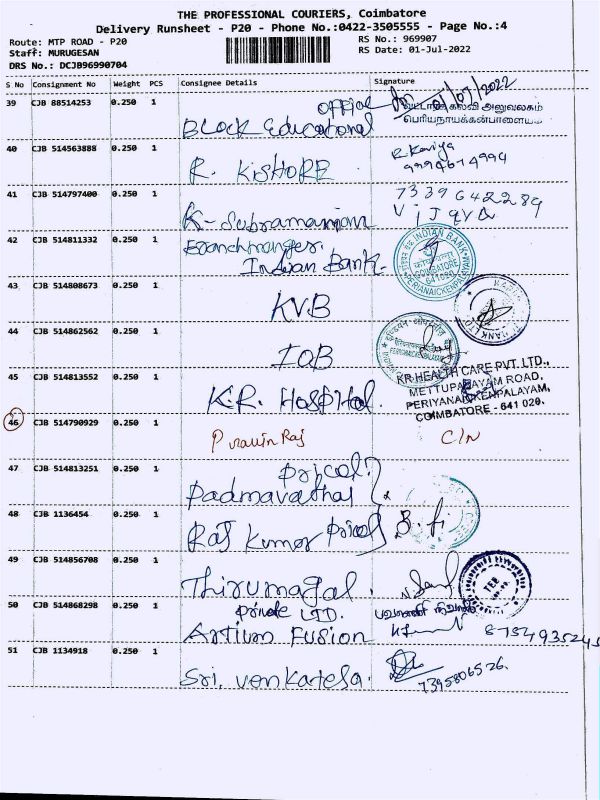 THE PROFESSIONAL COURIERS, Coimbatore
Delivery Runsheet - P20 - Phone No.:0422-3505555 - Page No.:4
Route: MTP ROAD - P20 RS No.: 969907
Staff: MURUGESAN RS Date: 01-Jul-2022
DRS No.: DCJB96990704
S No Consignment No Weight PCS Consignee Details Signature
39 CJB 88514253 0.250 1 Block Educational Office /07/2022
வட்டாரக்கல்வி அலுவலகம்
பெரியநாயக்கன்பாளையம்
40 CJB 514563888 0.250 1 R. KISHORE R Kaviya
9994674994
41 CJB 514797400 0.250 1 K-Subramaniyan 7339642289
Vijaya
42 CJB 514811332 0.250 1 Branchmanger.
Indian Bank INDIAN BANK
COIMBATORE
641020
PERIANAICKENPALAYAM
43 CJB 514808673 0.250 1 KVB
44 CJB 514862562 0.250 1 IOB
45 CJB 514813552 0.250 1 K.R. Hospital. KR HEALTH CARE PVT. LTD.,
METTUPALAYAM ROAD,
PERIYANAICKENPALAYAM,
COIMBATORE - 641 020.
46 CJB 514790929 0.250 1 Pravin Raj C/N
47 CJB 514813251 0.250 1 Pricol
Padmavathaj
48 CJB 1136454 0.250 1 Raj Kumar Pricol
49 CJB 514856708 0.250 1 Thirumagal.
50 CJB 514868298 0.250 1 Private LTD.
Artium Fusion 8754935245
51 CJB 1134918 0.250 1 Sri. Venkatesa.
7395806526.